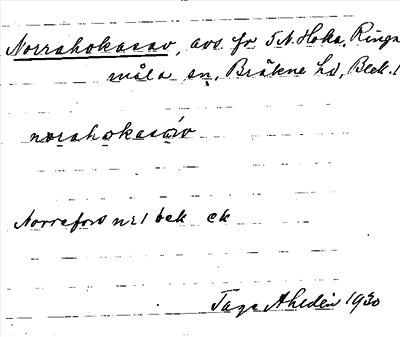 Norrahokasav, avs. fr 5 N. Hoka, Ringa
måla sn, Bräkne hd, Blek. l
norahokasav
Norrefors nr 1 bek ek
Tage Ahldén 1930